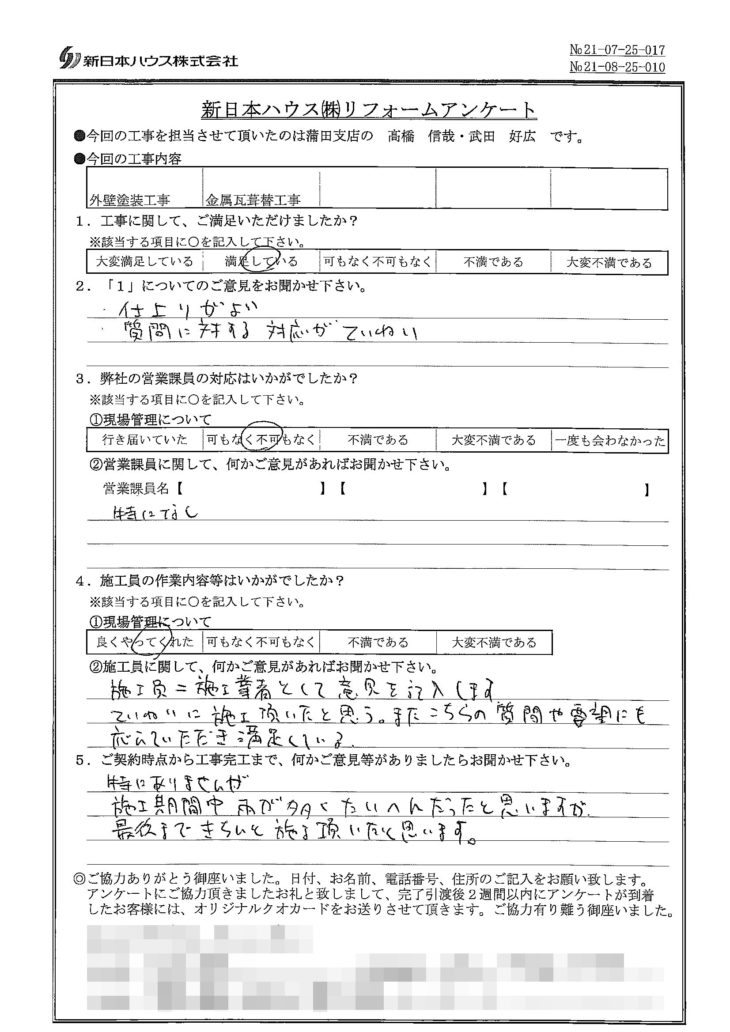 新日本ハウス株式会社
№21-07-25-017
№21-08-25-010
新日本ハウス㈱リフォームアンケート
●今回の工事を担当させて頂いたのは蒲田支店の 髙橋 信哉・武田 好広 です。
●今回の工事内容
外壁塗装工事 金属瓦葺替工事
1．工事に関して、ご満足いただけましたか？
※該当する項目に○を記入して下さい。
大変満足している 満足している 可もなく不可もなく 不満である 大変不満である
2．「1」についてのご意見をお聞かせ下さい。
・仕上りがよい
・質問に対する対応がていねい
3．弊社の営業課員の対応はいかがでしたか？
※該当する項目に○を記入して下さい。
①現場管理について
行き届いていた 可もなく不可もなく 不満である 大変不満である 一度も会わなかった
②営業課員に関して、何かご意見があればお聞かせ下さい。
営業課員名【 】【 】【 】
特になし
4．施工員の作業内容等はいかがでしたか？
※該当する項目に○を記入して下さい。
①現場管理について
良くやってくれた 可もなく不可もなく 不満である 大変不満である
②施工員に関して、何かご意見があればお聞かせ下さい。
施工員＝施工業者として意見を記入します
ていねいに施工頂いたと思う。またこちらの質問や要望にも
応えていただき満足している.
5．ご契約時点から工事完工まで、何かご意見等がありましたらお聞かせ下さい。
特にありませんが
施工期間中雨が多くたいへんだったと思いますが.
最後まできちんと施工頂いたと思います。
◎ご協力ありがとう御座いました。日付、お名前、電話番号、住所のご記入をお願い致します。
アンケートにご協力頂きましたお礼と致しまして、完了引渡後２週間以内にアンケートが到着
したお客様には、オリジナルクオカードをお送りさせて頂きます。ご協力有り難う御座いました。